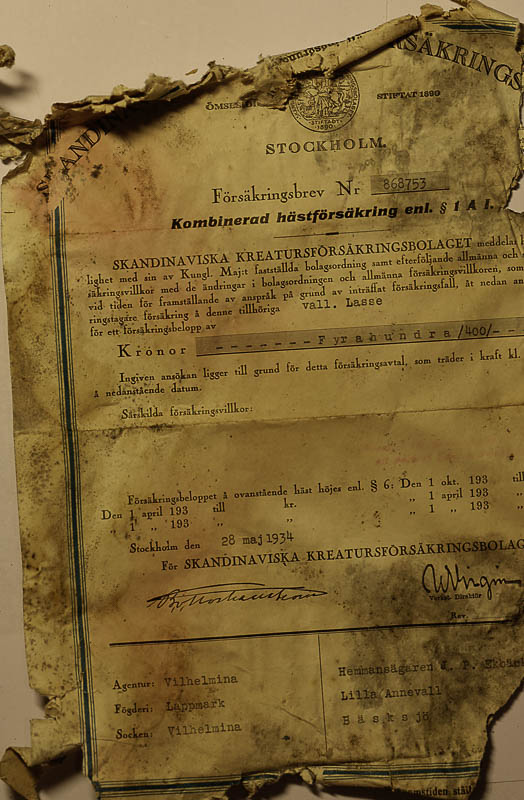 SKANDIN
SÄKRINGS
ÖMSESIDI
STIFTAT 1890
STIFTADT
1890
STOCKHOLM.
Försäkringsbrev Nr 868753
Kombinerad hästförsäkring enl. § 1 A I.
SKANDINAVISKA KREATURSFÖRSÄKRINGSBOLAGET meddelar
lighet med sin av Kungl. Maj:t fastställda bolagsordning samt efterföljande allmänna och
säkringsvillkor med de ändringar i bolagsordningen och allmänna försäkringsvillkoren, som
vid tiden för framställande av anspråk på grund av inträffat försäkringsfall, åt nedan an
ringstagare försäkring å denne tillhöriga vall. Lasse
för ett försäkringsbelopp av
Kronor -------Fyrahundra/400/--
Ingiven ansökan ligger till grund för detta försäkringsavtal, som träder i kraft kl.
å nedanstående datum.
Särskilda försäkringsvillkor:
Försäkringsbeloppet å ovanstående häst höjes enl. § 6: Den 1 okt. 193 till
Den 1 april 193 till kr. „ 1 april 193 „
„ 1 „ 193 „ „ „ 1 „ 193 „
Stockholm den 28 maj 1934
För SKANDINAVISKA KREATURSFÖRSÄKRINGSBOLAG
Verkst. Direktör
Rev.
Agentur: Vilhelmina
Fögderi: Lappmark
Socken: Vilhelmina
Hemmansägaren J. P. Ekbäc
Lilla Annevall
Bäsksjö
omstiden ställ